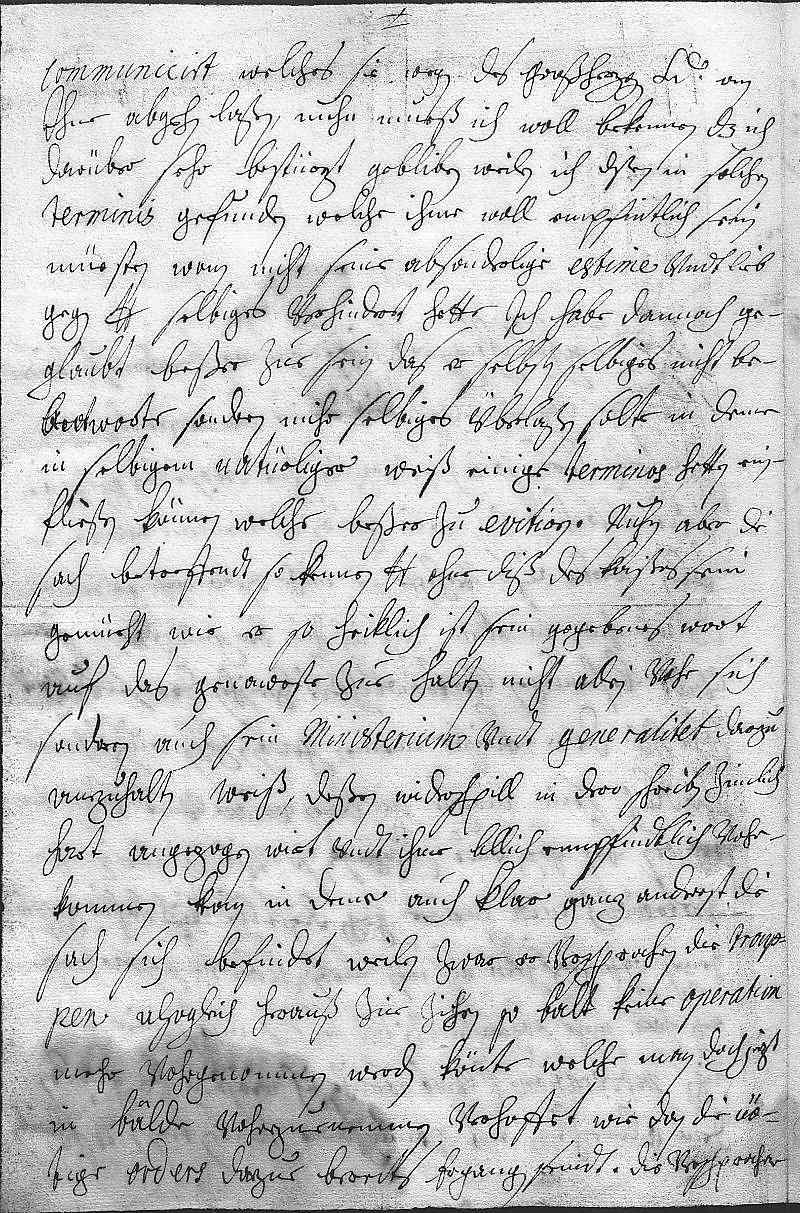 communicirt welches sie wegen des Großherzogen Ld. an
Ihne abgehn laßen, nuhn mueß ich woll bekennen dz ich
darüber sehr bestürzt gebliben weilen ich dißen in solchen
terminis gefunden welche ihme woll empfintlich sein
müesten wan nicht seine absonderlige estime Undt lieb
gegen selbiges Verhindert hette Ich habe dannoch ge-
glaubt beßer zue sein das er selbsten selbiges nicht be-
andtworte sondren mihr selbiges Überlaßen solte in deme
in selbigem natürliger weiß einige terminos hetten ein-
fließen können welche beßer zu evitiren. Nuhn aber die
sach betreffendt so kennen ohne diß des Kaißers sein
gemüeht wie er so heiklich ist sein gegebenes wort
auf das genaweste zue halten nicht allein Vohr sich
sondren auch sein Ministerium Undt generalitet darzu
anzuhalten weiß, deßen widerspill in dero schreiben zimlich
hart angezogen wirt Undt ihme billich empfindtlich Vohr-
kommen kan in deme auch klar ganz anderst die
sach sich befindet weilen zwar er Versprochen die troup-
pen herauß zue zihen so balt keine operation
mehr Vohrgenommen werden könte welche man doch jezt
in bälde Vohrzuenemmen Verhoffet wie dan die
orders darzue bereits ergangen seindt. die Versprochene